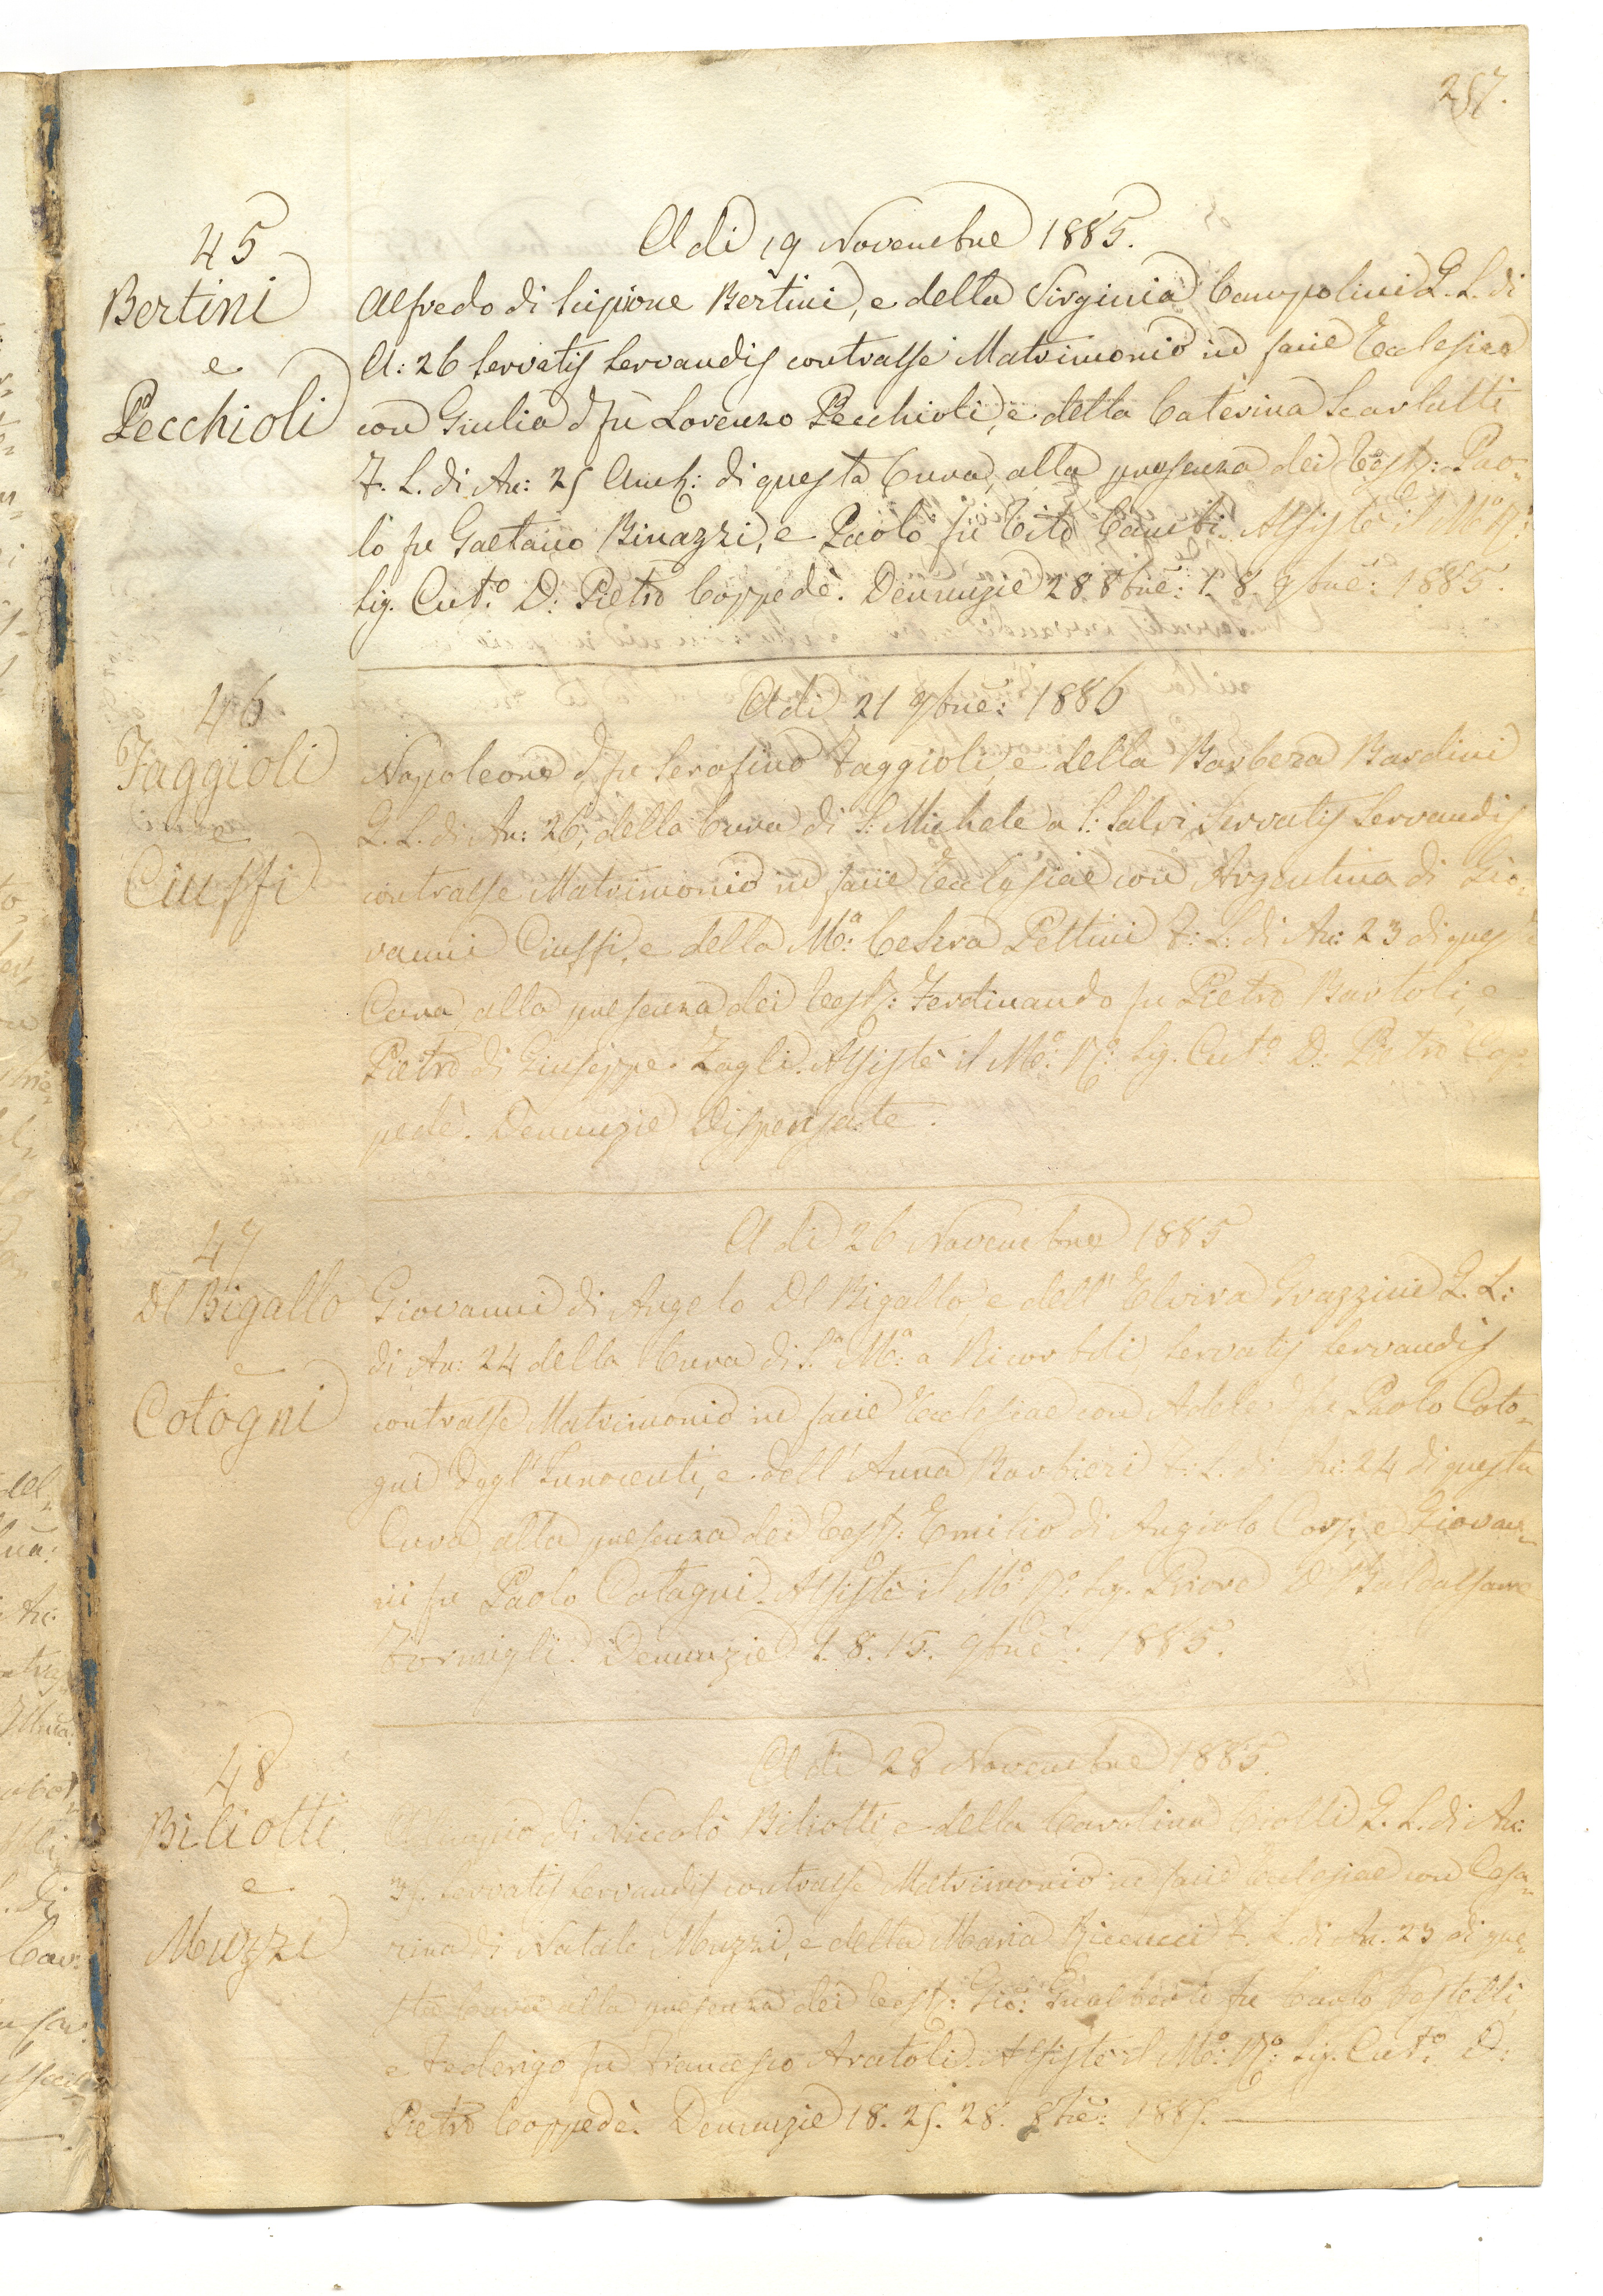 257.
45
Bertini
e
Pecchioli
A dì 19 Novembre 1885.
Alfredo di Scipione Bertini, e della Virginia Campolini G. L. di
A: 26 Servatis Servandis contrasse Matrimonio in facie Ecclesiae
con Giulia d fu Lorenzo Pecchioli, e della Caterina Scarlatti
F. L. di An: 25 Amb: di questa Cura, alla presenza dei Test: Pao-
lo fu Gaetano Binazzi, e Paolo fu Tito Cambi. Assistè il M:o R:o
Sig. Cut.o D: Pietro Coppedè. Denunzie 28 8bre: 1. 8. 9bre: 1885.
46
Faggioli
e
Ciuffi
A dì 21 9bre: 1886
Napoleone d fu Serafino Faggioli, e della Barbera Bardini
G. L. di An: 26, della Cura di S: Michele a S: Salvi, Servatis Servandis
contrasse Matrimonio in facie Ecclesiae con Argentina di Gio-
vanni Ciuffi, e della M:a Cesera Pettini F: L: di An: 23 di questa
Cura, alla presenza dei Test: Ferdinando fu Pietro Bartoli, e
Pietro di Giuseppe Zagli. Assistè il M:o R:o Sig. Cut:o D: Pietro Cop-
pedè. Denunzie Dispensate.
47
Dl Bigallo
e
Cotogni
A dì 26 Novembre 1885
Giovanni di Angelo Dl Bigallo, e dell' Elvira Grazzini G. L:
di An: 24 della Cura di S.a M:a a Ricorboli Servatis Servandis
contrasse Matrimonio in facie Ecclesiae con Adele d fu Paolo Coto-
gni Degl' Innocenti, e dell' Anna Barbieri F: L. di An: 24 di questa
Cura, alla presenza dei Test: Emilio di Angiolo Corsi, e Giovan-
ni fu Paolo Cotogni. Assistè il M:o R:o Sig. Priore D. Baldassarre
Formigli. Denunzie 1. 8. 15. 9bre: 1885.
48
Biliotti
e
Muzzi
A dì 28 Novembre 1885.
di Niccolò Biliotti e della Carolina Ciolli G. L. di An:
Servatis Servandis contrasse Matrimonio in facie Ecclesiae con Cesa-
rina di Natale Muzzi, e della Maria Riccucci F. L. di An. 23 di que-
sta Cura alla presenza dei Test: Gio: Gualberto fu Carlo Pestelli,
e Federigo fu Francesco Aratoli. Assistè il M:o R:o Sig. Cut:o D:
Pietro Coppedè. Denunzie 18. 25. 28. 8bre: 1885.